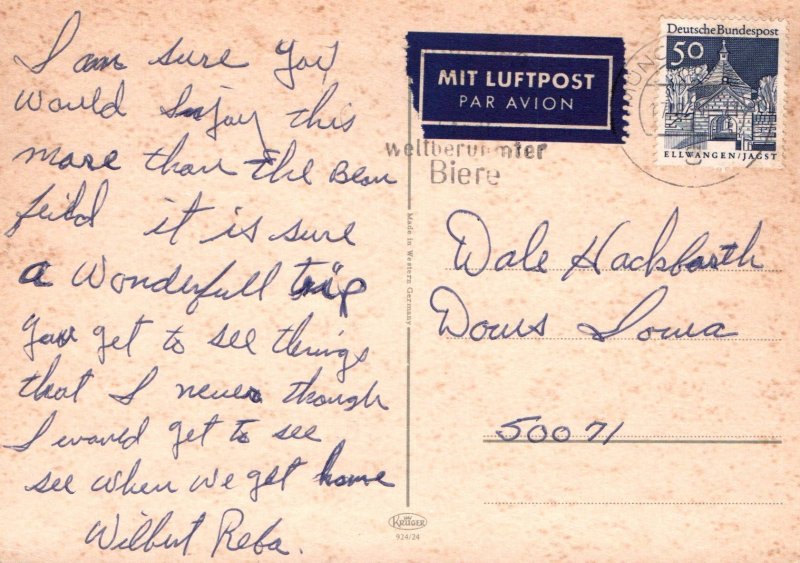 I am sure you
would Injoy this
more than the Bean
feild it is sure
a wonderfull trip
you get to see things
that I never though
I would get to see
see when we get home
Wilbert Reba.
MIT LUFTPOST
PAR AVION
weltberühmter
Biere
Deutsche Bundespost
50
ELLWANGEN/JAGST
Made in Western Germany
Dale Hackbarth
Dows Iowa
50071
KRÜGER
924/24